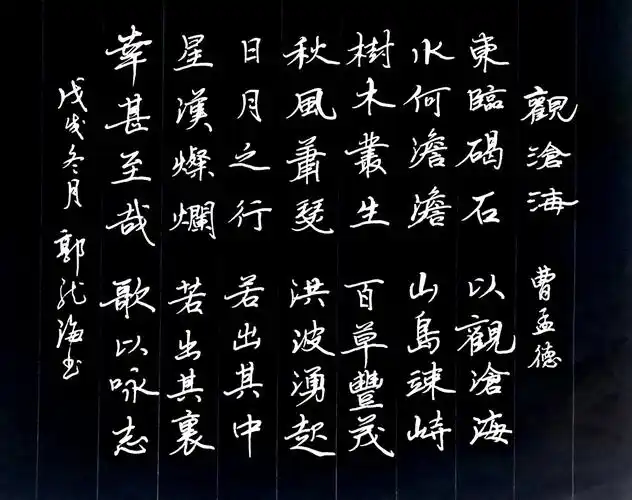 觀滄海 曹孟德
東臨碣石 以觀滄海
水何澹澹 山島竦峙
樹木叢生 百草豐茂
秋風蕭瑟 洪波湧起
日月之行 若出其中
星漢燦爛 若出其裏
幸甚至哉 歌以咏志
戊戌冬月 郭龙海书